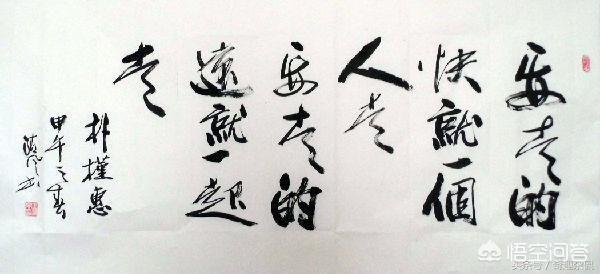 要走的
快就一個
人走
要走的
遠就一起
走
朴槿惠
甲午之春
悟空问答